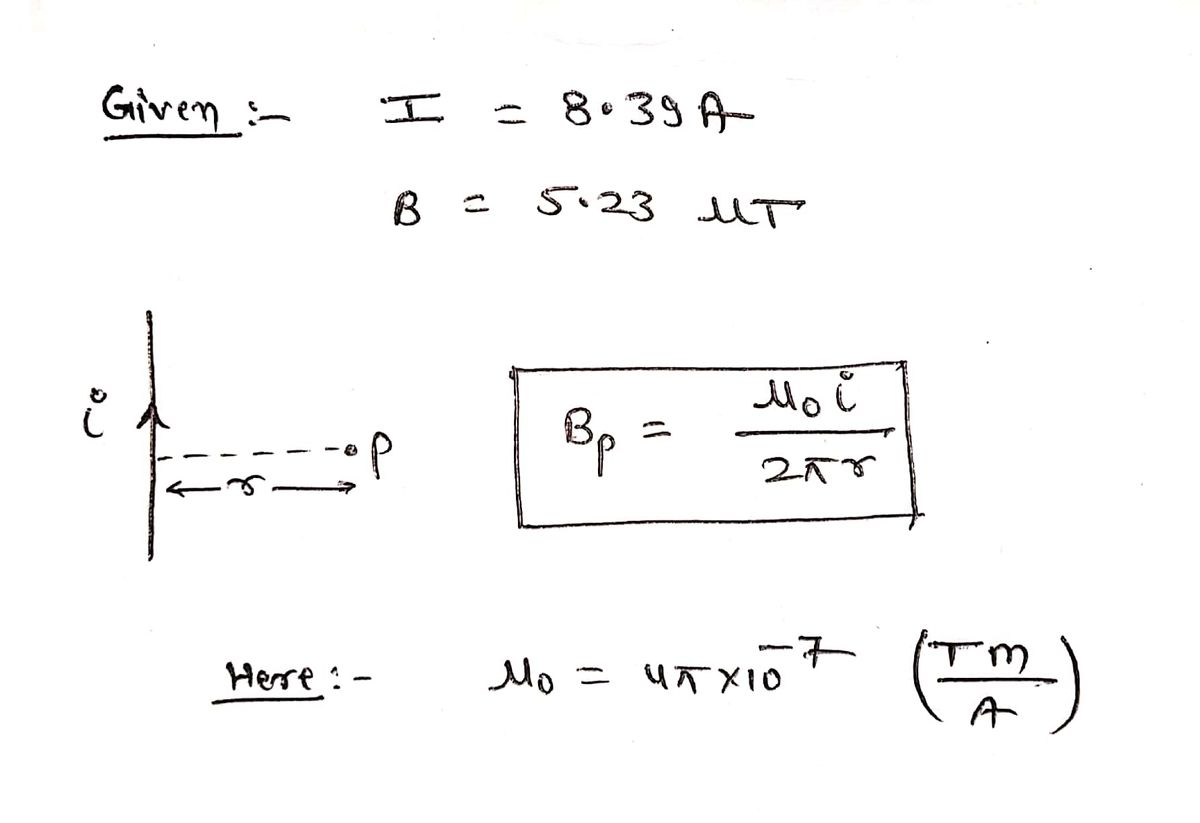 Given :- I = 8.39 A
B = 5.23 μT
i
P
r
Bp = μ₀ i / 2πr
Here :- μ₀ = 4π×10⁻⁷ (Tm/A)